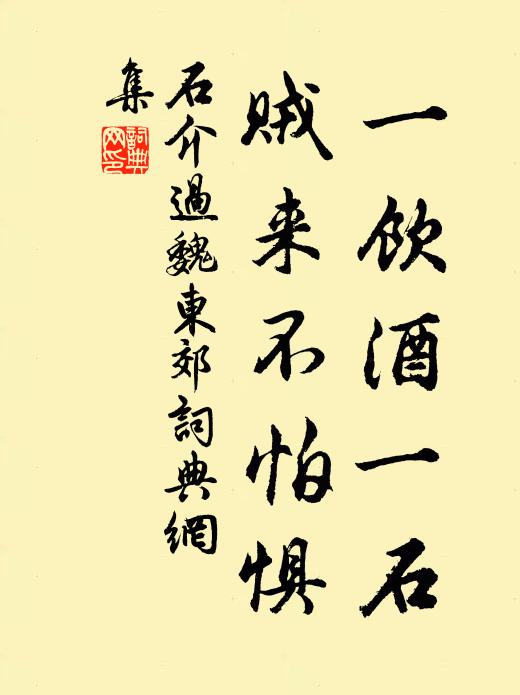 一飲酒一石
賊来不怕惧
石介過魏東郊詞典網
集
詞典
网印